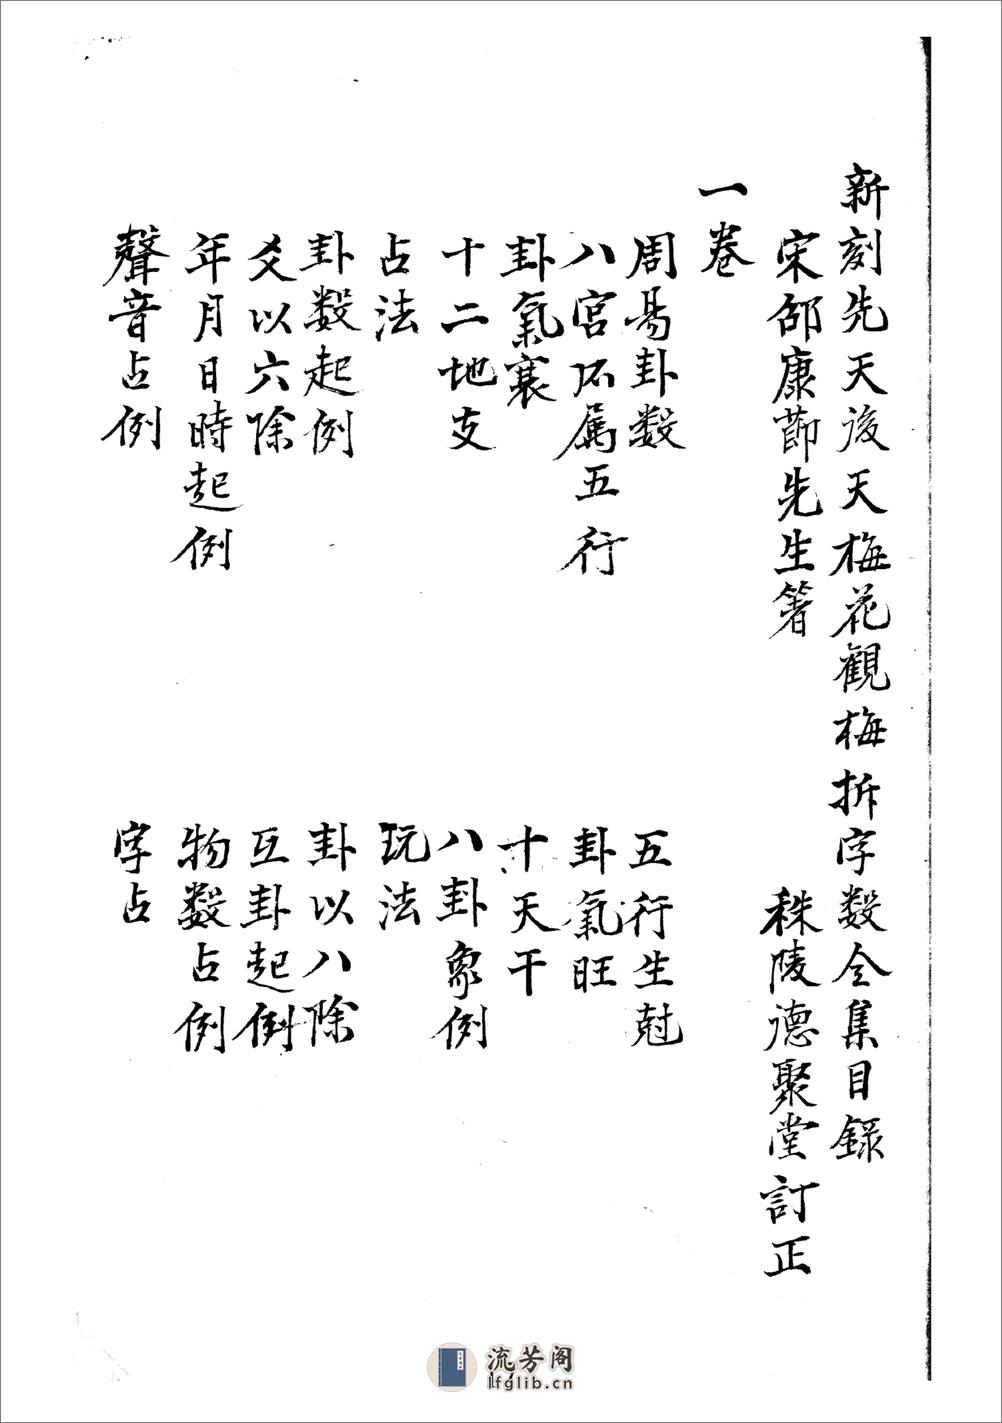 新刻先天後天梅花觀梅拆字数全集目録
宋邵康莭先生箸 秣陵德聚堂訂正
一卷
周易卦数 五行生尅
八宫所属五行 卦氣旺
卦氣衰 十天干
十二地支 八卦象例
占法 玩法
卦数起例 卦以八除
爻以六除 互卦起例
年月日時起例 物数占例
聲音占例 字占
流芳阁
lfglib.cn